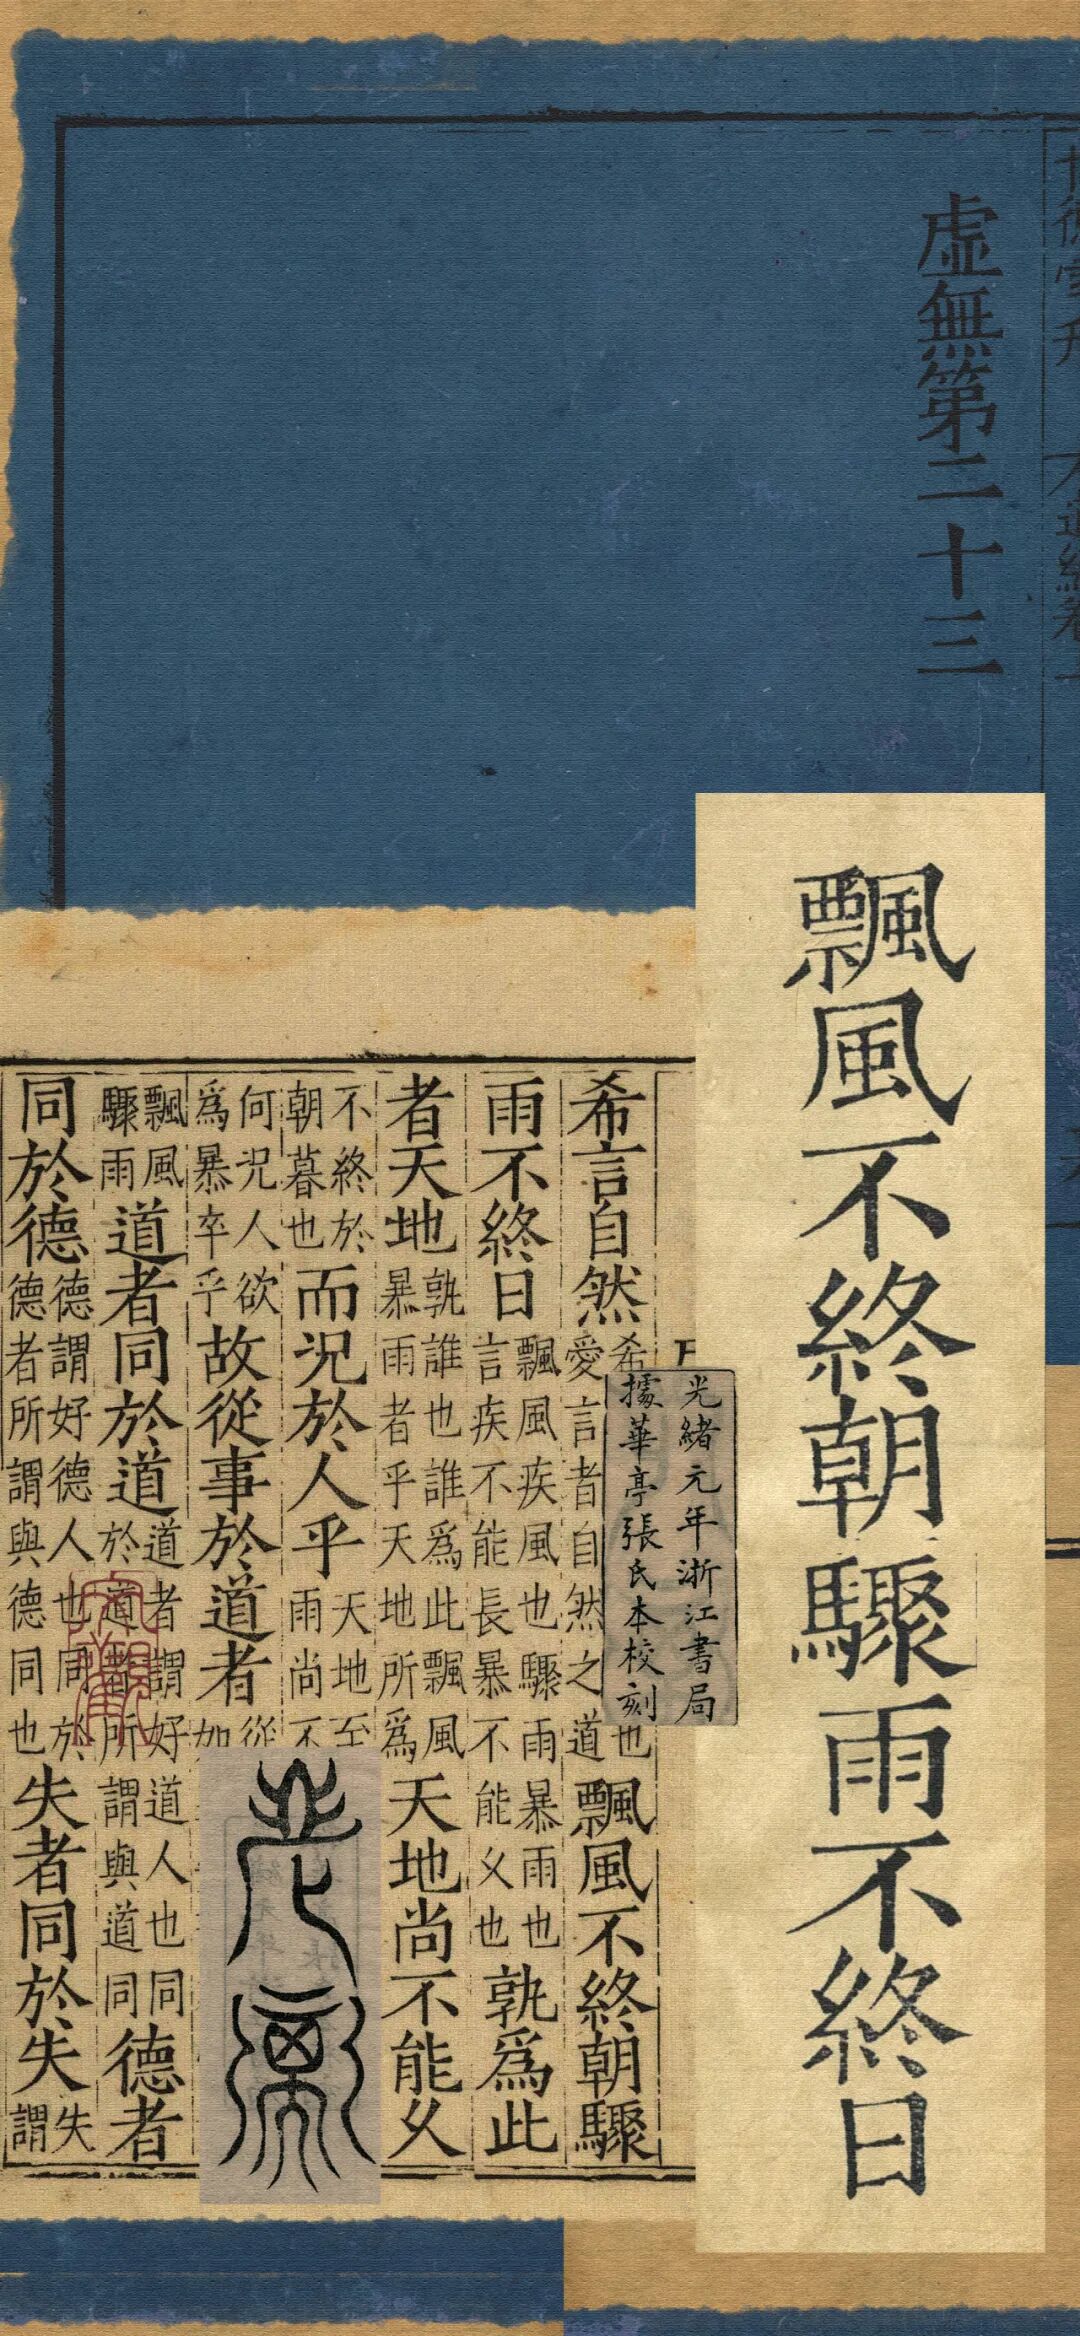 虛無第二十三
飄風不終朝驟雨不終日
光緒元年浙江書局
據華亭張氏本校刻
希言自然
希
也
愛言者自然之道
飄風不終朝驟
雨不終日
飄風疾風也驟雨暴雨也
言疾不能長暴不能久也
孰為此
者天地
孰誰也誰為此飄風
暴雨者乎天地所為
天地尚不能久
不終於
朝暮也
而況於人乎
天地至
雨尚不
何況人欲
為暴卒乎
故從事於道者
從
如
飄風
驟雨
道者同於道
道者謂好道人也同
於道者所謂與道同
德者
同於德
德謂好德人也同於
德者所謂與德同也
失者同於失
失
謂
老